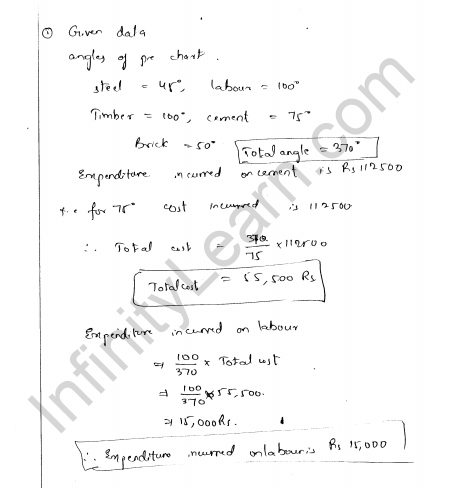 ① Given data
angles of pie chart.
steel = 45°, labour = 100°
Timber = 100°, cement = 75°
Brick = 50° Total angle = 370°
Expenditure incurred on cement is Rs 112500
i.e for 75° cost incurred is 112500
∴ Total cost = 370/75 × 112500
Total cost = 55,500 Rs
Expenditure incurred on labour
⇒ 100/370 × Total cost
⇒ 100/370 × 55,500.
⇒ 15,000 Rs.
∴ Expenditure incurred on labour is Rs 15,000
InfinityLearn.com